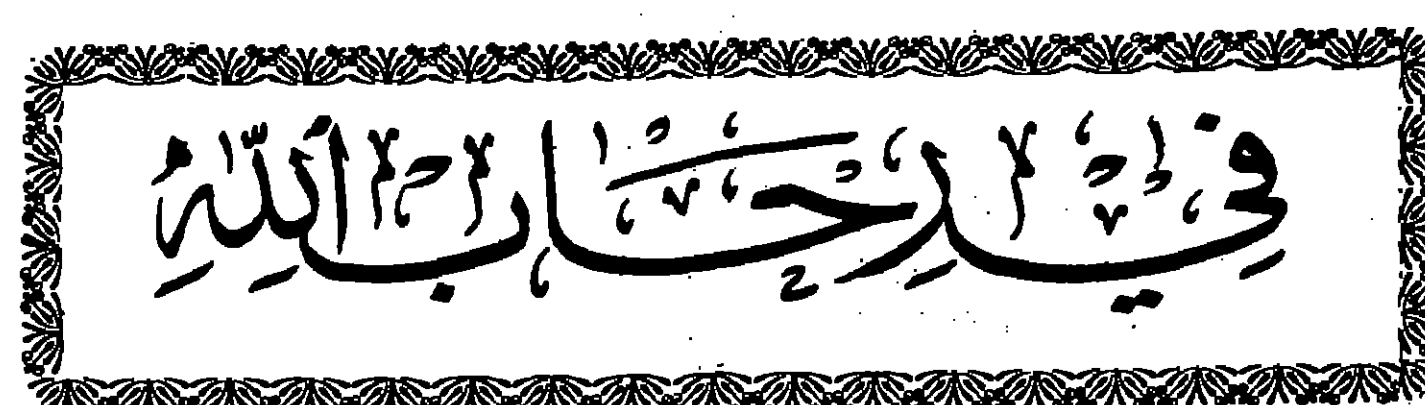 فِي رِحَابِ اللّٰهِ